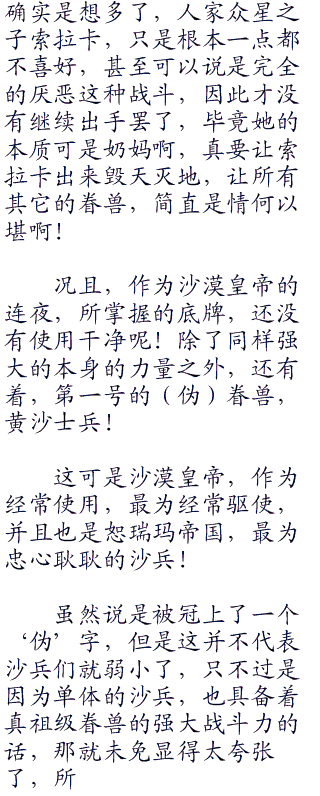 确实是想多了，人家众星之
子索拉卡，只是根本一点都
不喜好，甚至可以说是完全
的厌恶这种战斗，因此才没
有继续出手罢了，毕竟她的
本质可是奶妈啊，真要让索
拉卡出来毁天灭地，让所有
其它的眷兽，简直是情何以
堪啊！
况且，作为沙漠皇帝的
连夜，所掌握的底牌，还没
有使用干净呢！除了同样强
大的本身的力量之外，还有
着，第一号的（伪）眷兽，
黄沙士兵！
这可是沙漠皇帝，作为
经常使用，最为经常驱使，
并且也是恕瑞玛帝国，最为
忠心耿耿的沙兵！
虽然说是被冠上了一个
‘伪’字，但是这并不代表
沙兵们就弱小了，只不过是
因为单体的沙兵，也具备着
真祖级眷兽的强大战斗力的
话，那就未免显得太夸张
了，所